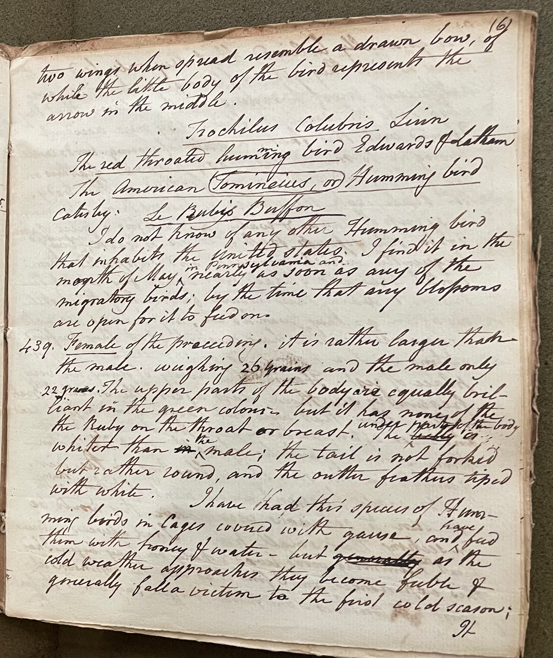 (6)
two wings when spread resemble a drawn bow, of
while the little body of the bird represents the
arrow in the middle.
Trochilus Colubris Linn
The red throated humming bird Edwards & Latham
The American Tomineius, or Humming bird
Catesby. Le Rubis Buffon
I do not know of any other Humming bird
that inhabits the United States. I find it in the
month of May, in Pennsylvania and nearly as soon as any of the
migratory birds; by the time that any blossoms
are open for it to feed on.
439. Female of the preceeding. it is rather larger than
the male. weighing 26 grains and the male only
22 grains. The upper parts of the body are equally bril-
liant in the green colour - but it has none of the
the Ruby on the throat or breast. The belly under parts of the body is
whiter than in the male; the tail is not forked
but rather round, and the outter feathers tiped
with white. I have had this species of Hum-
ming birds in Cages covered with gause, and have fed
them with honey & water - but generally as the
cold weather approaches they become feeble &
generally fall a victim to the first cold season;